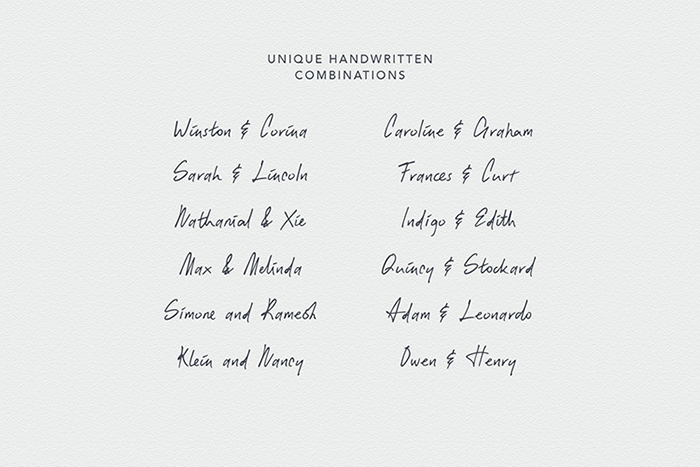 UNIQUE HANDWRITTEN
COMBINATIONS
Winston & Corina
Sarah & Lincoln
Nathanial & Xie
Max & Melinda
Simone and Ramesh
Klein and Nancy
Caroline & Graham
Frances & Curt
Indigo & Edith
Quincy & Stockard
Adam & Leonardo
Owen & Henry